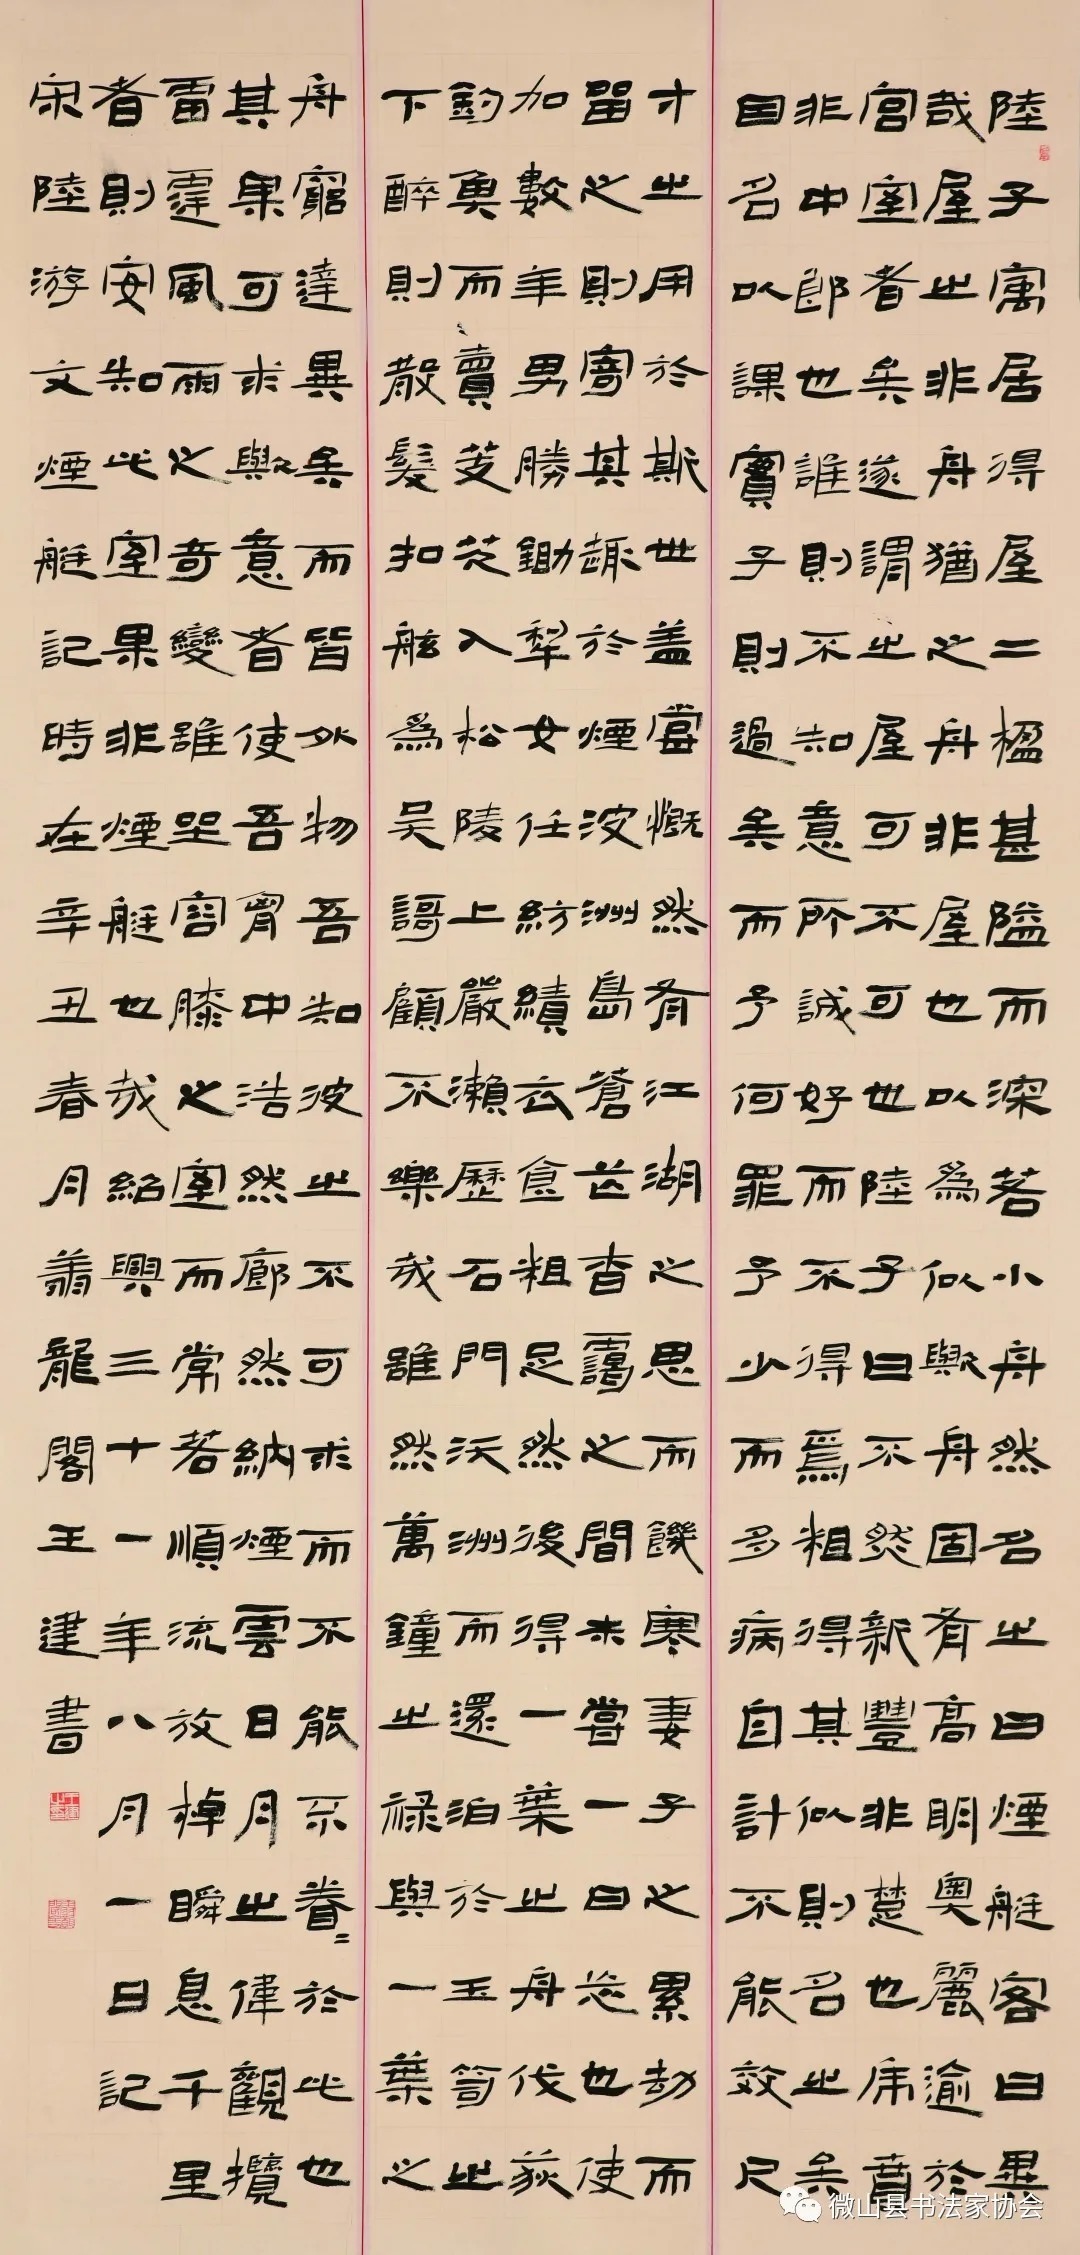 陸子寓居得屋二楹甚隘而深若小舟然名之曰煙艇客曰異
哉屋之非舟猶之舟非屋也以為似歟舟固有高明奧麗逾於
宮室者矣遂謂之屋可不可也陸子曰不然新豐非楚也虎賁
非中郎也誰則不知意所誠好而不得焉粗得其似則名之矣
因名以課實子則過矣而予何罪予少而多病自計不能效尺
寸之用於斯世蓋嘗慨然有江湖之思而饑寒妻子之累劫而
留之則寄其趣於煙波洲島蒼茫杳靄之間未嘗一日忘也使
加數年男勝鋤犁女任紡績衣食粗足然後得一葉之舟伐荻
釣魚而賣芰芡入松陵上嚴瀨歷石門沃洲而還泊於玉笥之
下醉則散髮扣舷為吳謌顧不樂哉雖然萬鐘之祿與一葉之
舟窮達異矣而皆外物吾知彼之不可求而不能不眷〻於此也
其果可求歟意者使吾胸中浩然廓然納煙雲日月之偉觀攬
雷霆風雨之奇變雖坐容膝之室而常若順流放棹瞬息千里
者則安知此室果非煙艇也哉紹興三十一年八月一日記
宋陸游文煙艇記時在辛丑春月龍閣王建書
微山县书法家协会